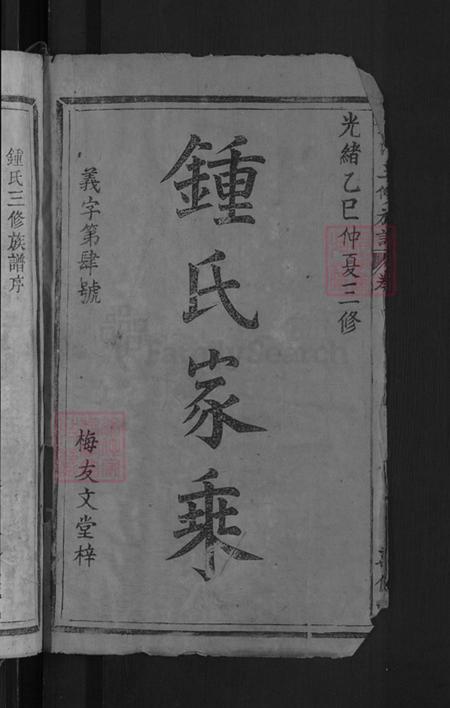 光緒乙巳仲夏三修
鍾氏家乘
義字第肆號
梅友文堂梓
鍾氏三修族譜序